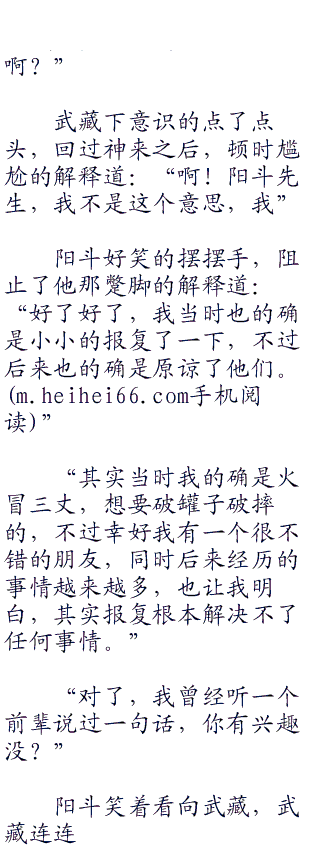 啊？”
武藏下意识的点了点
头，回过神来之后，顿时尴
尬的解释道：“啊！阳斗先
生，我不是这个意思，我”
阳斗好笑的摆摆手，阻
止了他那蹩脚的解释道：
“好了好了，我当时也的确
是小小的报复了一下，不过
后来也的确是原谅了他们。
(m.heihei66.com手机阅
读)”
“其实当时我的确是火
冒三丈，想要破罐子破摔
的，不过幸好我有一个很不
错的朋友，同时后来经历的
事情越来越多，也让我明
白，其实报复根本解决不了
任何事情。”
“对了，我曾经听一个
前辈说过一句话，你有兴趣
没？”
阳斗笑着看向武藏，武
藏连连